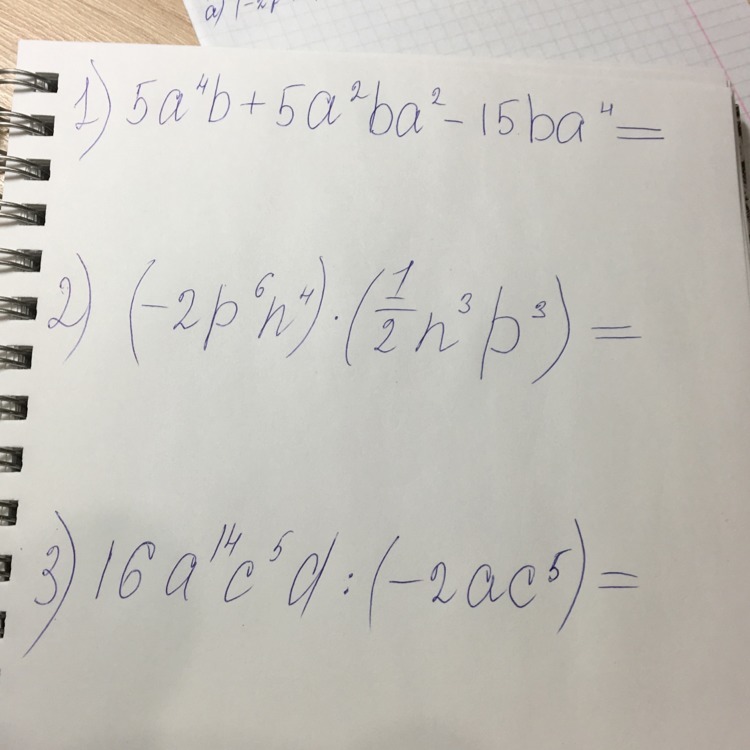 а) (-2p
1) 5a⁴b + 5a²ba² - 15ba⁴ =
2) (-2p⁶n⁴) · (1/2 n³p³) =
3) 16a¹⁴c⁵d : (-2ac⁵) =